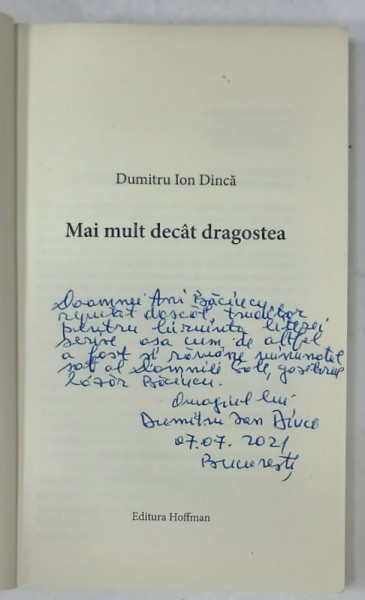 Dumitru Ion Dincă
Mai mult decât dragostea
Doamnei Ani Băciucu,
reputat dascăl, truditor
pentru lumina literei
scrise, așa cum de altfel
a fost și rămâne minunatul
soț al Domniei Sale,
Băciucu.
Omagiul lui
Dumitru Ion Dincă
07.07.2021
București
Editura Hoffman